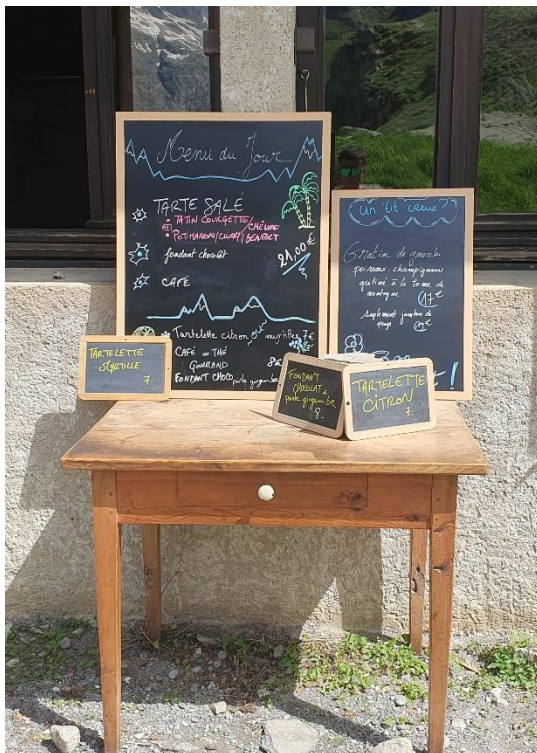 Menu du Jour
TARTE SALÉ
• TATIN COURGETTE/CHÈVRE
• POTIMARRON/CURRY/BEAUFORT
fondant chocolat
21,00€
CAFÉ
Tartelette citron ou myrtilles 7€
CAFÉ ou THÉ
GOURMAND 8€
FONDANT CHOCO
un 'tit creux?
Gratin de gnocchi
poireaux-champignons
gratiné à la tomme de
montagne 17€
suplément jambon de
pays
TARTELETTE
MYRTILLE
7.
FONDANT
CHOCOLAT
8.
TARTELETTE
CITRON
7.